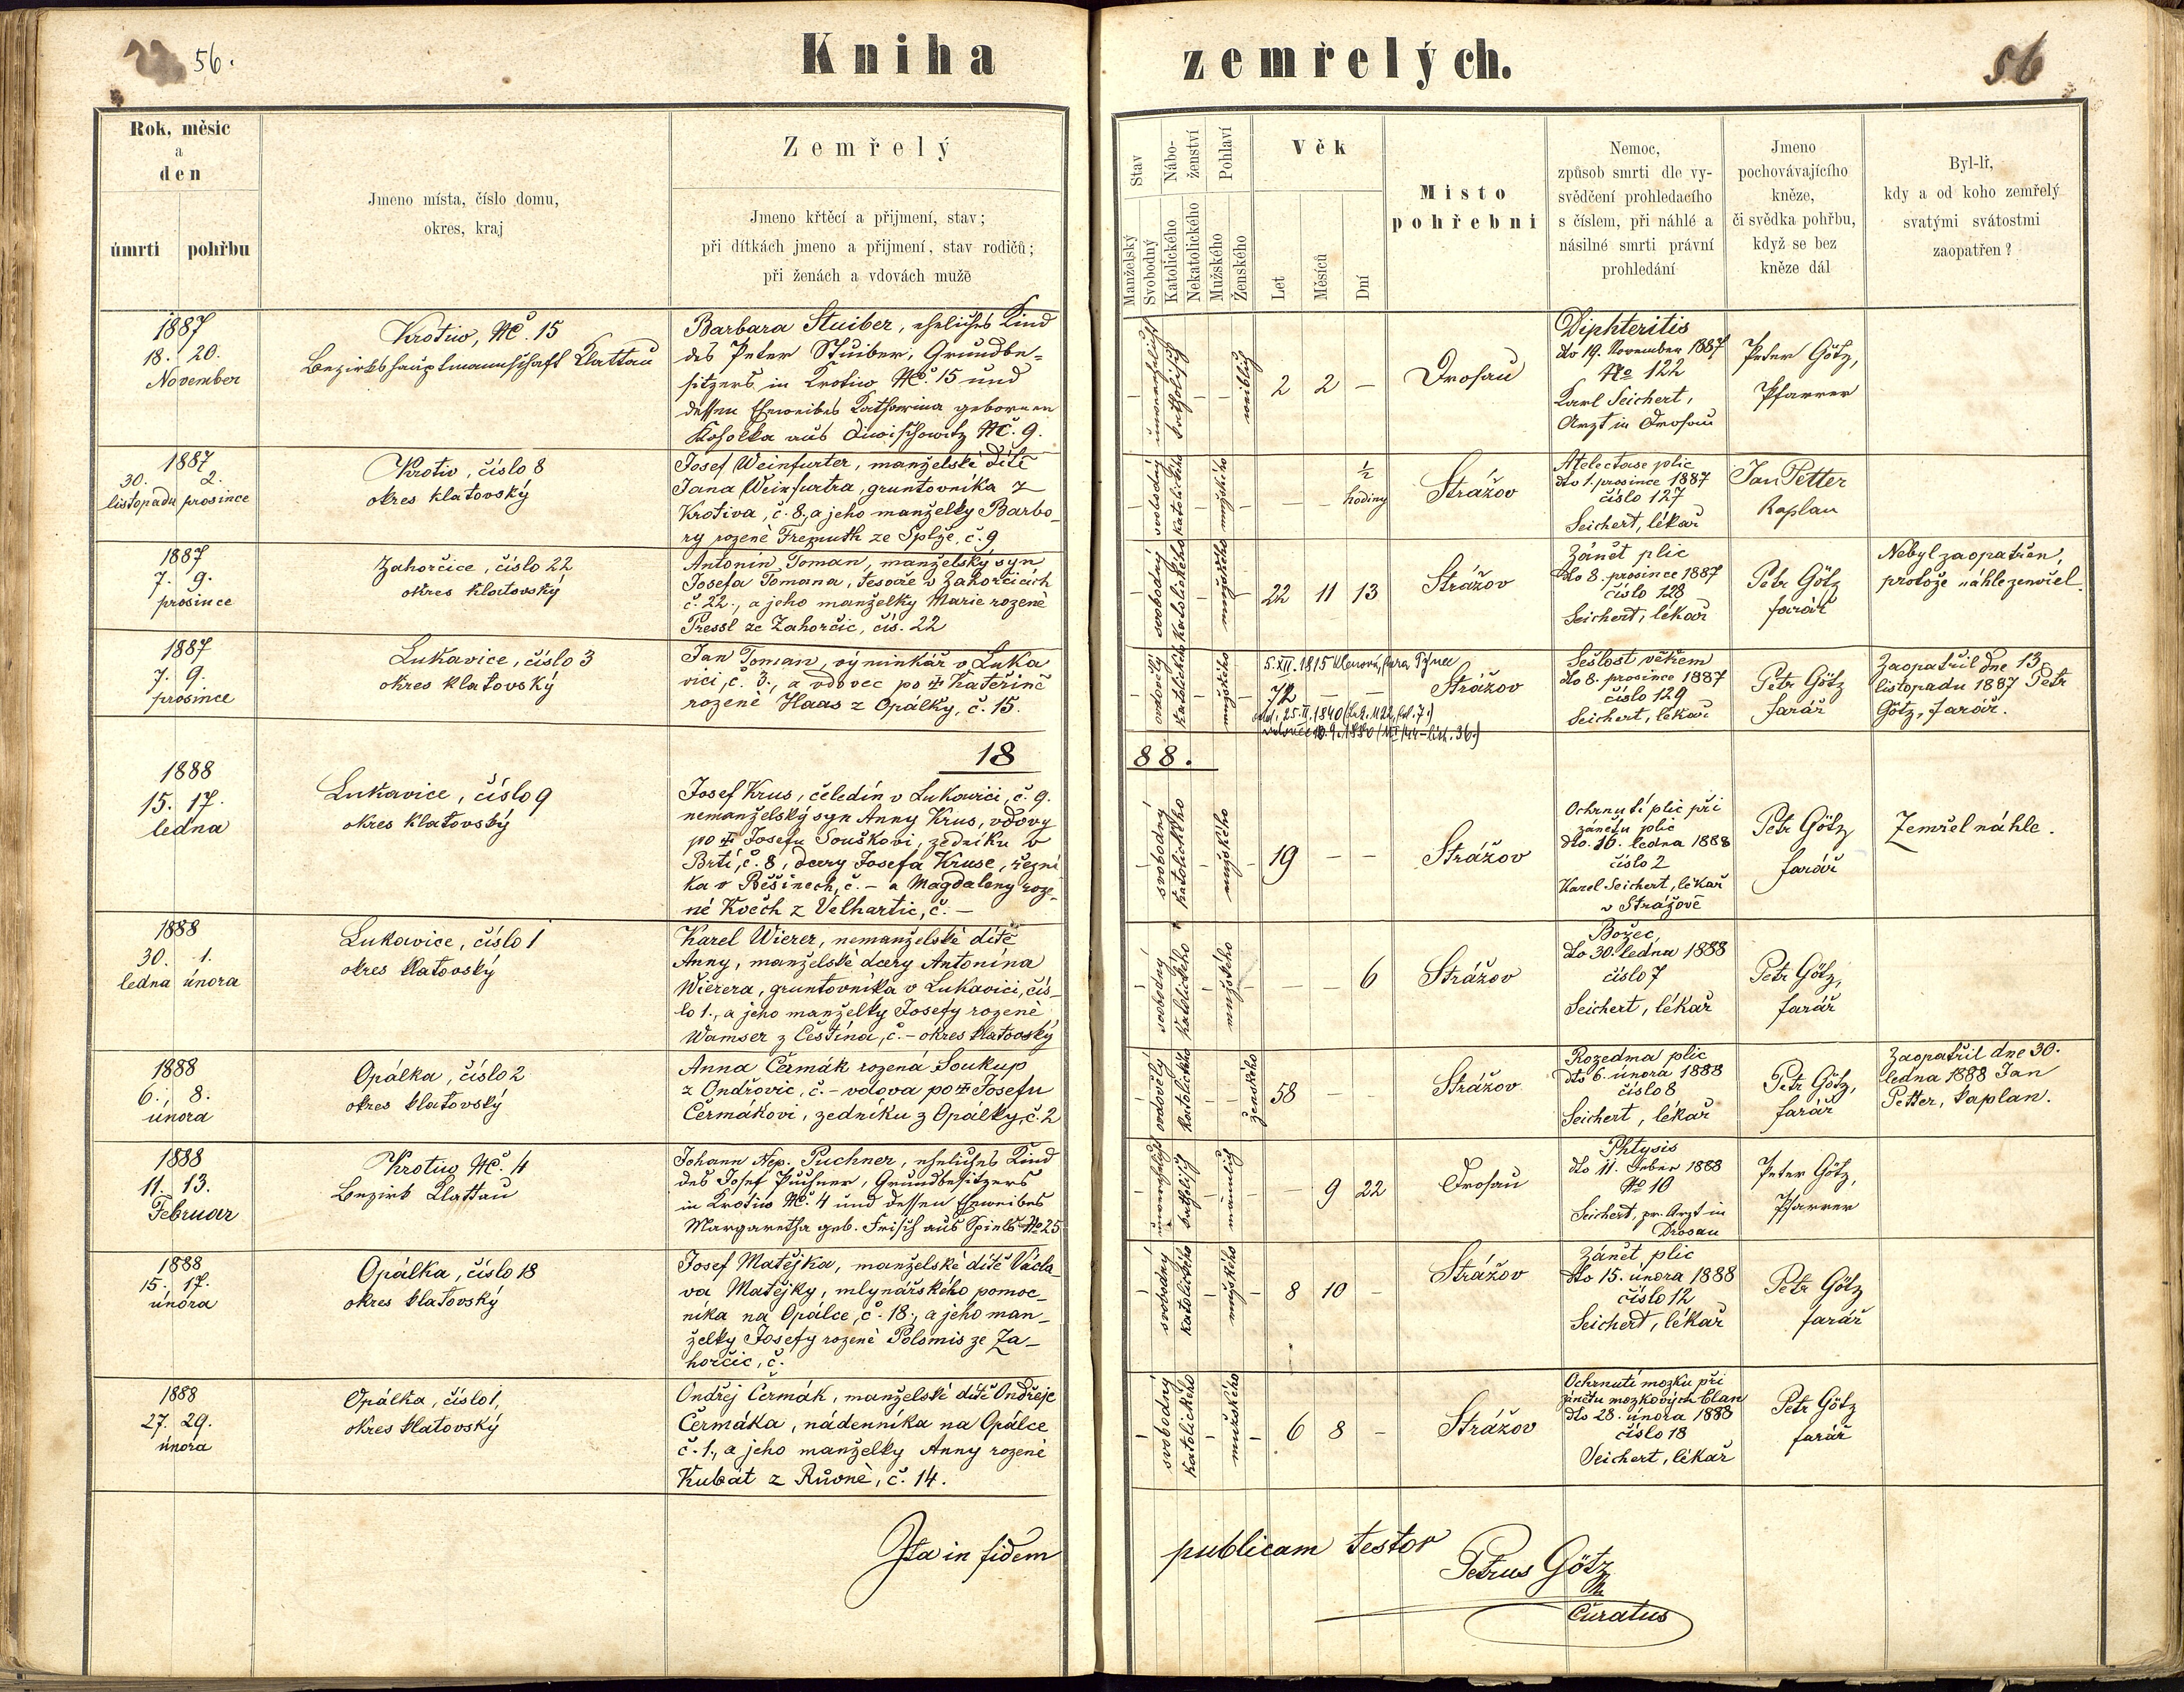 56.
Kniha zemřelých.
56
Rok, měsíc
a
den
úmrti
pohřbu
Jmeno místa, číslo domu,
okres, kraj
Zemřelý
Jmeno křtěcí a přijmení, stav;
při dítkách jmeno a přijmení, stav rodičů;
při ženách a vdovách muže
Stav
Manželský
Svobodný
Nábo-
ženství
Katolického
Nekatolického
Pohlaví
Mužského
Ženského
Věk
Let
Měsíců
Dní
Místo
pohřebni
Nemoc,
způsob smrti dle vy-
svědčení prohledacího
s číslem, při náhlé a
násilné smrti právní
prohledání
Jmeno
pochovávajícího
kněze,
či svědka pohřbu,
když se bez
kněze dál
Byl-li,
kdy a od koho zemřelý
svatými svátostmi
zaopatřen?
1887
18. 20.
November
Krotiw, NC. 15
Bezirkshauptmannschaft Klattau
Barbara Stuiber, eheliches Kind
des Peter Stuiber, Grundbe-
sitzers in Krotiw NC. 15 und
dessen Eheweibes Katharina geborenen
aus NC. 9.
katholisch
weiblich
2 2 –
Drosau
Diphteritis
dto 19. November 1887
No 122
Karl Seichert,
Arzt in Drosau
Peter Götz,
Pfarrer
1887
30. 2.
listopadu prosince
Krotiv, číslo 8
okres klatovský
Josef Weinfurter, manželské dítě
Jana Weinfurtra, gruntovníka z
Krotiva, č. 8., a jeho manželky Barbo-
ry rozené Fremuth ze Splže, č. 9
svobodný
katolického
mužského
– – ½ hodiny
Strážov
Atelectase plic
dto 1. prosince 1887
číslo 127
Seichert, lékař
Jan Petter
Kaplan
1887
7. 9.
prosince
Zahorčice, číslo 22
okres klatovský
Antonín Toman, manželský syn
Josefa Tomana, tesaře v Zahorčicích
č. 22., a jeho manželky Marie rozené
Pressl ze Zahorčic, čís. 22
svobodný
katolického
mužského
22 11 13
Strážov
Zánět plic
dto 8. prosince 1887
číslo 128
Seichert, lékař
Petr Götz
farář
Nebyl zaopatřen,
protože náhle zemřel
1887
7. 9.
prosince
Lukavice, číslo 3
okres klatovský
Jan Toman, výminkář v Luka
vici, č. 3., a vdovec po † Kateřině
rozené Haas z Opálky, č. 15.
ovdovělý
katolického
mužského
5.XII.1815 Klenová, fara Týnec
72 – –
odd. 25.II.1840
Strážov
Sešlost věkem
dto 8. prosince 1887
číslo 129
Seichert, lékař
Petr Götz
farář
Zaopatřil dne 13.
listopadu 1887 Petr
Götz, farář.
18 88.
1888
15. 17.
ledna
Lukavice, číslo 9
okres klatovský
Josef Krus, čeledín v Lukavici, č. 9.
nemanželský syn Anny Krus, vdovy
po † Josefu Souškovi, zedníku v
Brtí, č. 8, dcery Josefa Kruse, řezní
ka v Běšinech, č. – a Magdaleny roze-
né Kvěch z Velhartic, č. –
svobodný
katolického
mužského
19 – –
Strážov
Ochrnutí plic při
zánětu plic
dto. 16. ledna 1888
číslo 2
Karel Seichert, lékař
v Strážově
Petr Götz
farář
Zemřel náhle.
1888
30. 1.
ledna února
Lukavice, číslo 1
okres klatovský
Karel Wierer, nemanželské dítě
Anny, manželské dcery Antonína
Wierera, gruntovníka v Lukavici, čís-
lo 1., a jeho manželky Josefy rozené
Wamser z Čestína, č. – okres klatovský
svobodný
katolického
mužského
– – 6
Strážov
Božec,
dto 30. ledna 1888
číslo 7
Seichert, lékař
Petr Götz,
farář
1888
6., 8.
února
Opálka, číslo 2
okres klatovský
Anna Čermák rozená Soukup
z Ondřovic, č. – vdova po † Josefu
Čermákovi, zedníku z Opálky, č. 2
ovdovělý
katolického
ženského
58 – –
Strážov
Rozedma plic
dto 6. února 1888
číslo 8
Seichert, lékař
Petr Götz,
farář
Zaopatřil dne 30.
ledna 1888 Jan
Petter, kaplan.
1888
11. 13.
Februar
Krotiw NC. 4
Bezirk Klattau
Johann Nep. Puchner, eheliches Kind
des Josef Puchner, Grundbesitzers
in Krotiw NC. 4 und dessen Eheweibes
Margaretha geb. Frisch aus Spiels No 25
katholisch
männlich
– 9 22
Drosau
Phtysis
dto 11. Feber 1888
No 10
Seichert, pr. Arzt in
Drosau
Peter Götz,
Pfarrer
1888
15. 17.
února
Opálka, číslo 18
okres klatovský
Josef Matějka, manželské dítě Václa-
va Matějky, mlynářského pomoc-
níka na Opálce, č. 18., a jeho man-
želky Josefy rozené Polomis ze Za-
horčic, č.
svobodný
katolického
mužského
8 10 –
Strážov
Zánět plic
dto 15. února 1888
číslo 12
Seichert, lékař
Petr Götz
farář
1888
27. 29.
února
Opálka, číslo 1,
okres klatovský
Ondřej Čermák, manželské dítě Ondřeje
Čermáka, nádenníka na Opálce
č. 1., a jeho manželky Anny rozené
Kubát z Růvně, č. 14.
svobodný
katolického
mužského
6 8 –
Strážov
Ochrnutí mozku při
zánětu mozkových blan
dto 28. února 1888
číslo 18
Seichert, lékař
Petr Götz
farář
Ita in fidem publicam testor
Petrus Götz
Curatus